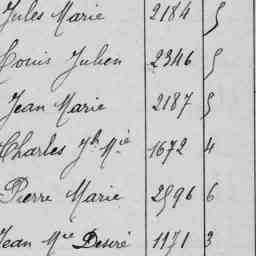 Jules Marie 2184 5
Louis Julien 2346 5
Jean Marie 2187 5
Charles Jh Mie 1672 4
Pierre Marie 2596 6
Jean Mie Desiré 1171 3